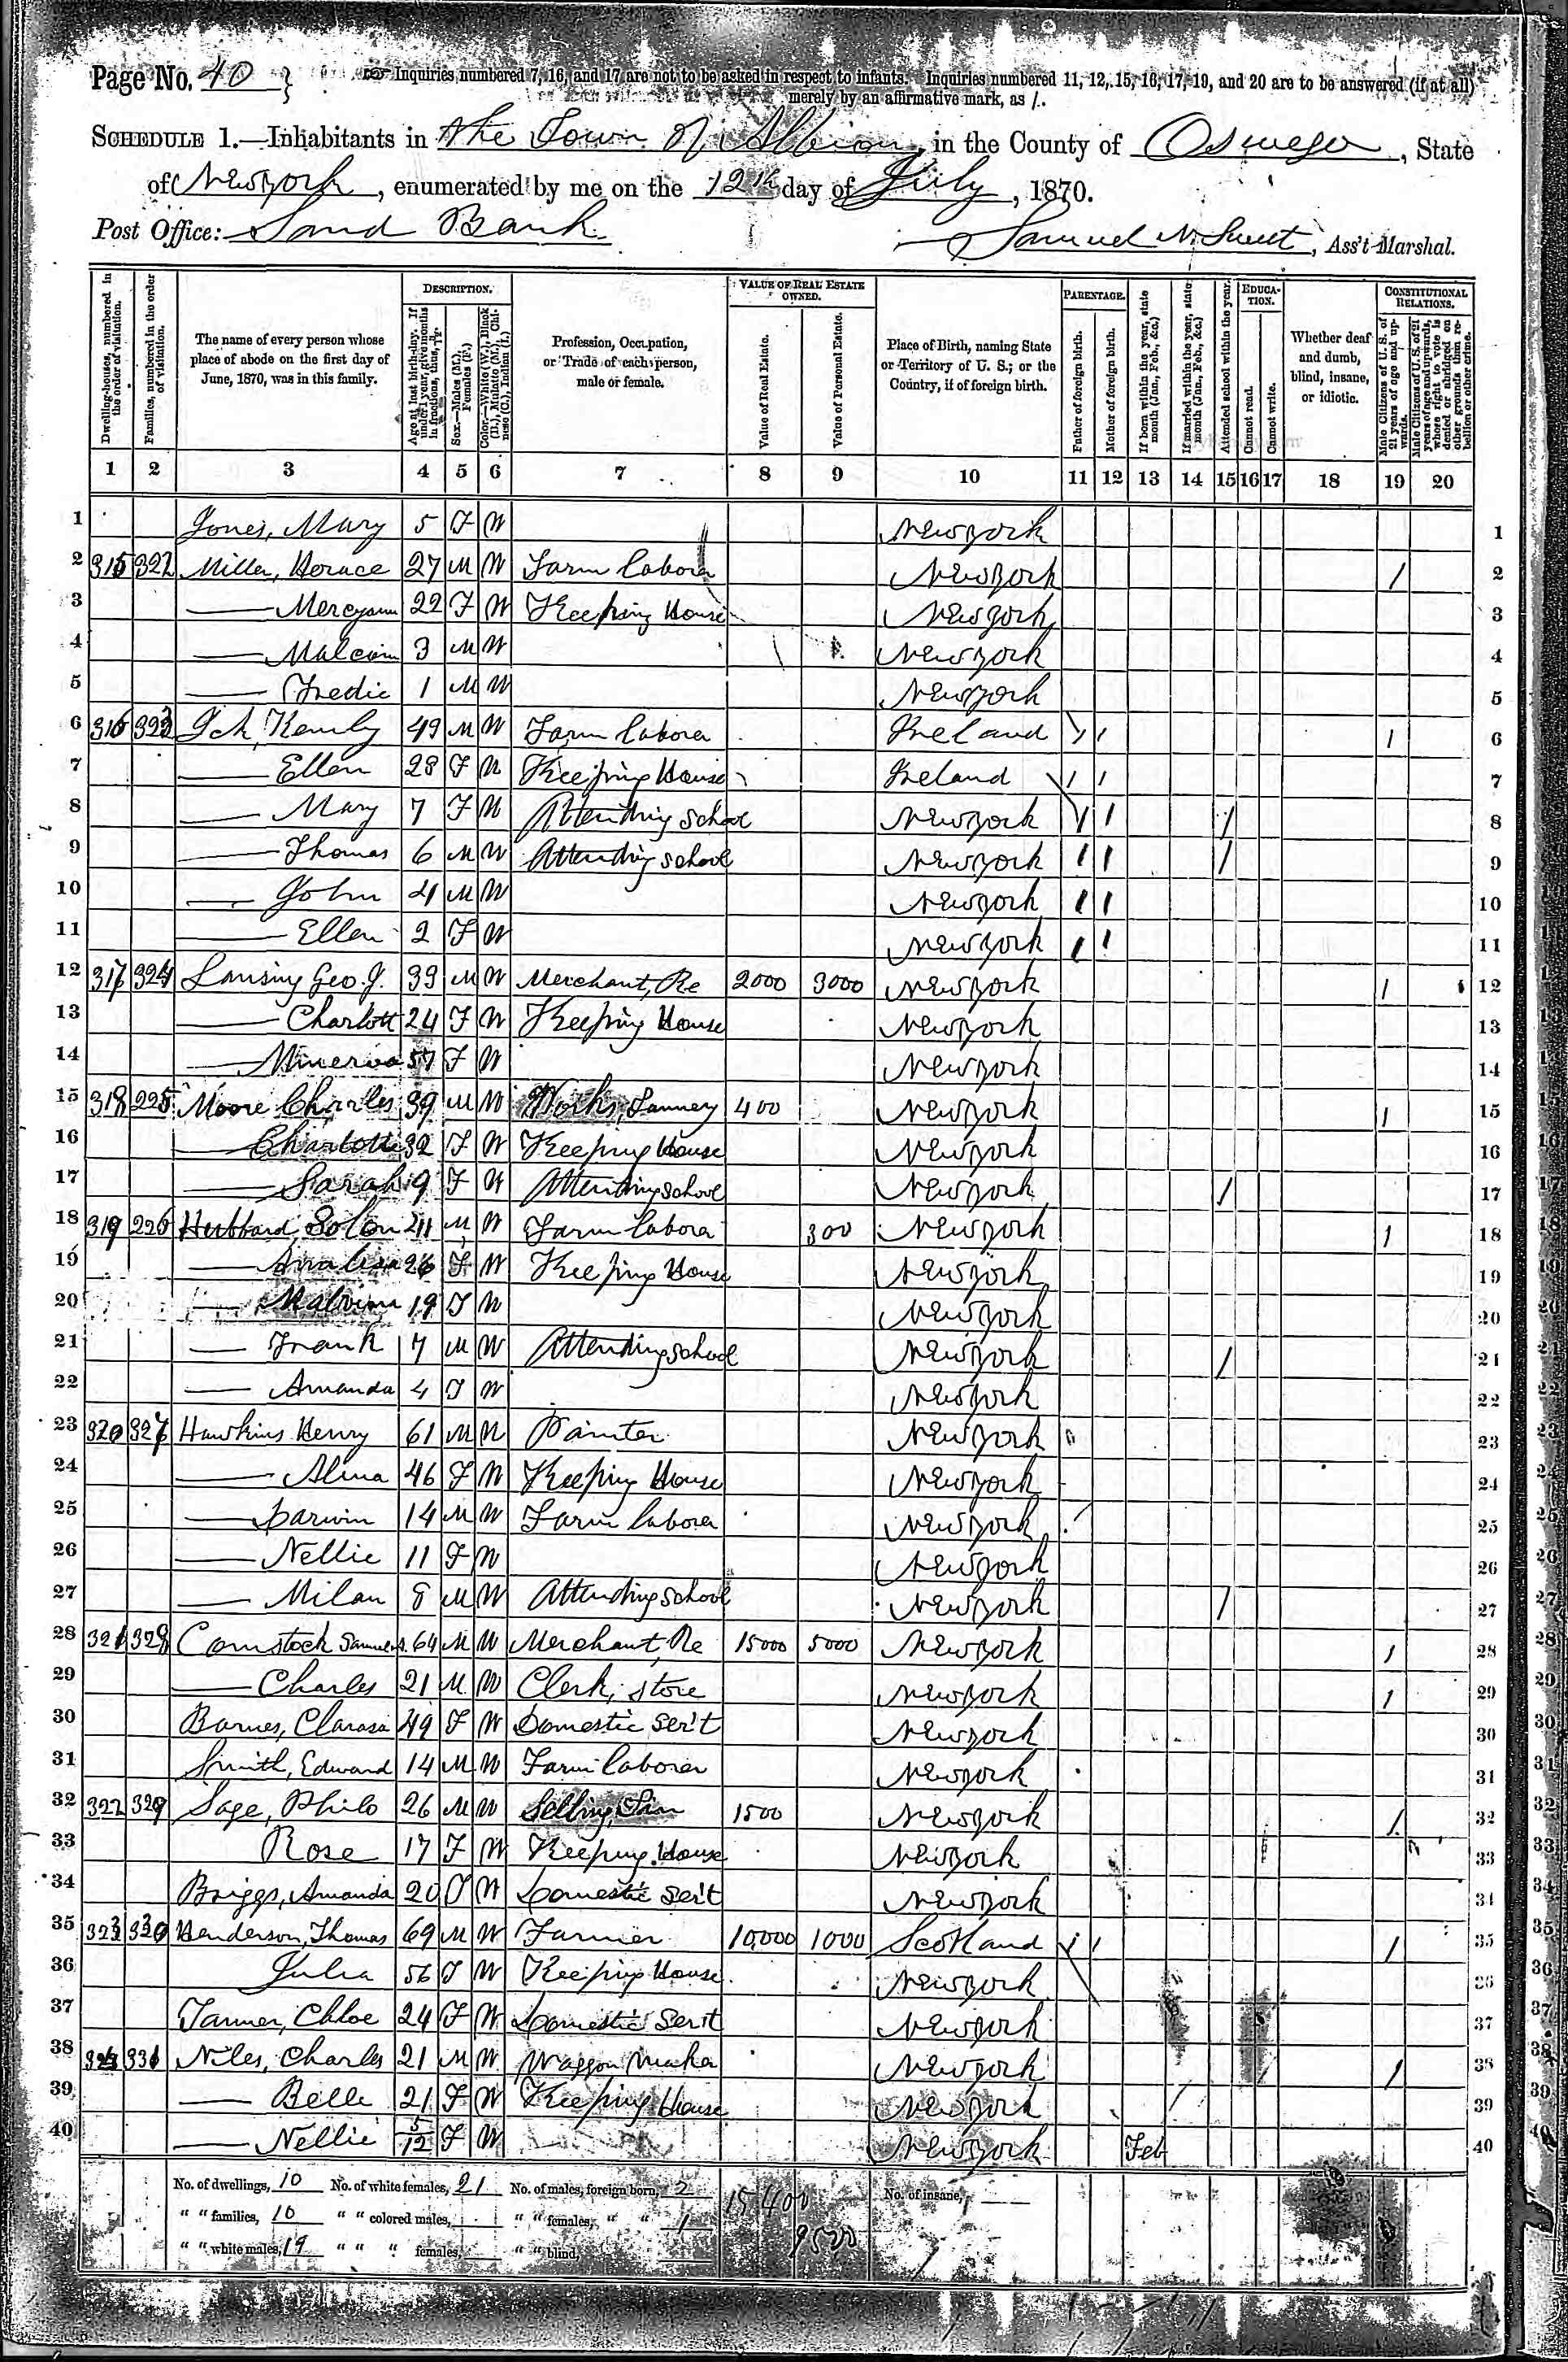 Page No. 40 } Inquiries numbered 7, 16, and 17 are not to be asked in respect to infants. Inquiries numbered 11, 12, 15, 16, 17, 19, and 20 are to be answered (if at all)
merely by an affirmative mark, as /.
SCHEDULE 1.—Inhabitants in the Town of Albion, in the County of Oswego, State
of New York, enumerated by me on the 12th day of July, 1870.
Post Office: Sand Bank
Samuel N. Sweet, Ass't Marshal.
Dwelling-houses, numbered in the order of visitation.
Families, numbered in the order of visitation.
The name of every person whose place of abode on the first day of June, 1870, was in this family.
DESCRIPTION.
Age at last birth-day. If under 1 year, give months in fractions, thus, 3/12.
Sex.—Males (M.), Females (F.)
Color.—White (W.), Black (B.), Mulatto (M.), Chinese (C.), Indian (I.)
Profession, Occupation, or Trade of each person, male or female.
VALUE OF REAL ESTATE OWNED.
Value of Real Estate.
Value of Personal Estate.
Place of Birth, naming State or Territory of U. S.; or the Country, if of foreign birth.
PARENTAGE.
Father of foreign birth.
Mother of foreign birth.
If born within the year, state month (Jan., Feb., &c.)
If married within the year, state month (Jan., Feb., &c.)
Attended school within the year.
EDUCATION.
Cannot read.
Cannot write.
Whether deaf and dumb, blind, insane, or idiotic.
CONSTITUTIONAL RELATIONS.
Male Citizens of U. S. of 21 years of age and upwards.
Male Citizens of U. S. of 21 years of age and upwards, where right to vote is denied or abridged on other grounds than rebellion or other crime.
1 2 3 4 5 6 7 8 9 10 11 12 13 14 15 16 17 18 19 20
1 Jones, Mary 5 F W New York 1
2 315 322 Miller, Horace 27 M W Farm labora New York / 2
3 —— Mercyann 22 F W Keeping House New York 3
4 —— Malcom 3 M W New York 4
5 —— Fredie 1 M W New York 5
6 316 323 49 M W Farm labora Ireland / / / 6
7 —— Ellen 28 F W Keeping House Ireland / / 7
8 —— Mary 7 F W Attending school New York / / / 8
9 —— Thomas 6 M W Attending school New York / / / 9
10 —— John 4 M W New York / / 10
11 —— Ellen 2 F W New York / / 11
12 317 324 Lansing Geo. J. 39 M W Merchant, Re 2000 3000 New York / 12
13 —— Charlott 24 F W Keeping House New York 13
14 —— Minerva 57 F W New York 14
15 318 225 Moore Charles 39 M W Works, Tannery 400 New York / 15
16 —— Charlotte 32 F W Keeping House New York 16
17 —— Sarah 9 F W Attending school New York / 17
18 319 226 Hubbard, Solon M W Farm labora 300 New York / 18
19 —— 26 F W Keeping House New York 19
20 —— Malvina 19 F W New York 20
21 —— Frank 7 M W Attending school New York / 21
22 —— Amanda 4 F W New York 22
23 320 327 Hawkins Henry 61 M W Painter New York 23
24 —— Alma 46 F W Keeping House New York 24
25 —— Darwin 14 M W Farm labora New York 25
26 —— Nellie 11 F W New York 26
27 —— Milan 8 M W Attending school New York / 27
28 321 328 Comstock Samuel 64 M W Merchant, Re 15000 5000 New York / 28
29 —— Charles 21 M W Clerk, store New York / 29
30 Barnes, Clarasa 49 F W Domestic Ser't New York 30
31 Smith, Edward 14 M W Farm laborer New York 31
32 322 329 Sage, Philo 26 M W Selling, 1500 New York / 32
33 Rose 17 F W Keeping House New York 33
34 Briggs, Amanda 20 F W Domestic Ser't New York 34
35 323 330 Henderson, Thomas 69 M W Farmer 10,000 1000 Scotland / / / 35
36 Julia 56 F W Keeping House New York 36
37 Tanner, Chloe 24 F W Domestic Ser't New York 37
38 324 331 Niles, Charles 21 M W Waggon maker New York / 38
39 —— Belle 21 F W Keeping House New York / 39
40 —— Nellie 5/12 F W New York Feb 40
No. of dwellings, 10 No. of white females, 21 No. of males, foreign born, 2 15400 No. of insane, ——
" " families, 10 " " colored males, " " females, " " 1 9500
" " white males, 19 " " " females, " " blind,